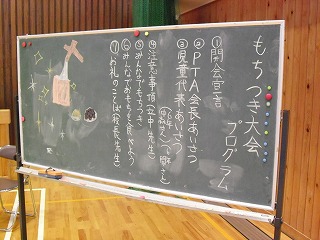 もちつき大会
プログラム
①開会宣言
②PTA会長あいさつ
③児童代表あいさつ
④注意事項(中先生)
⑤みんなでもちつき
⑥みんなでおもちを食べよう
⑦お礼のことば(校長先生)